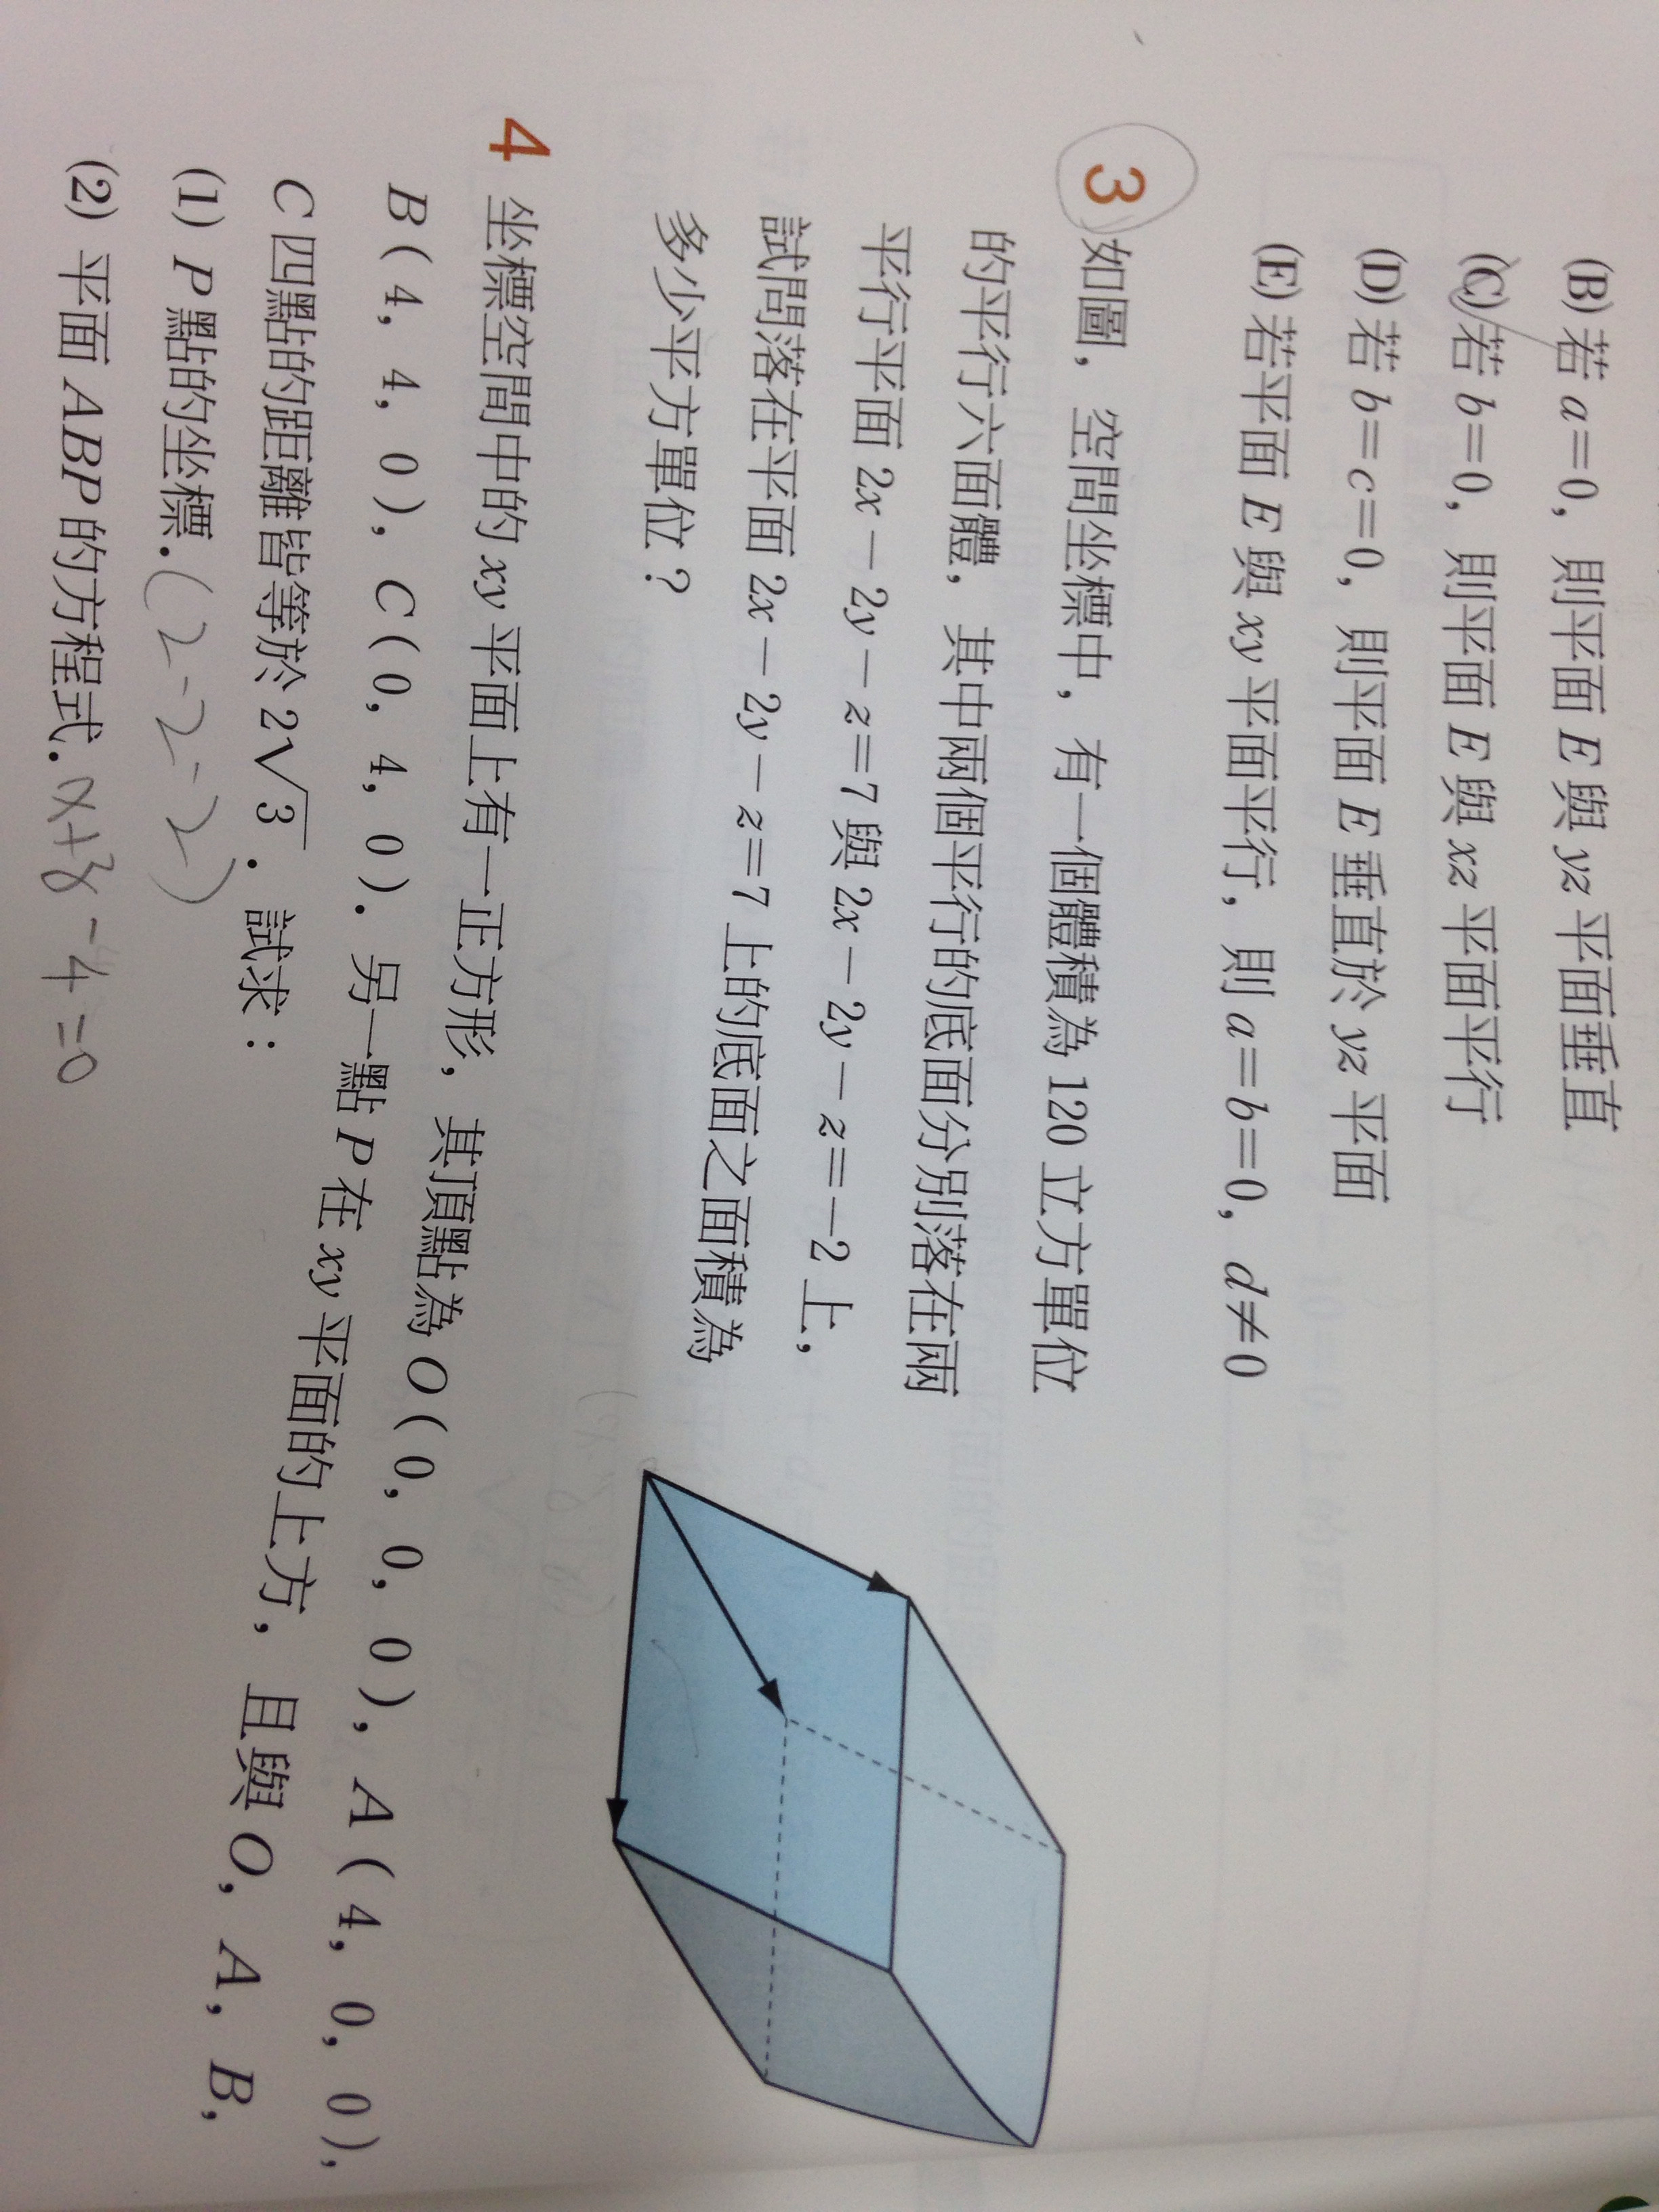 (B) 若 a=0, 則平面 E 與 yz 平面垂直
(C) 若 b=0, 則平面 E 與 xz 平面平行
(D) 若 b=c=0, 則平面 E 垂直於 yz 平面
(E) 若平面 E 與 xy 平面平行, 則 a=b=0, d≠0
3 如圖, 空間坐標中, 有一個體積為 120 立方單位
的平行六面體, 其中兩個平行的底面分別落在兩
平行平面 2x-2y-z=7 與 2x-2y-z=-2 上,
試問落在平面 2x-2y-z=7 上的底面之面積為
多少平方單位?
4 坐標空間中的 xy 平面上有一正方形, 其頂點為 O(0, 0, 0), A(4, 0, 0),
B(4, 4, 0), C(0, 4, 0). 另一點 P 在 xy 平面的上方, 且與 O, A, B,
C 四點的距離皆等於 2√3. 試求:
(1) P 點的坐標. (2-2-2)
(2) 平面 ABP 的方程式. x+z-4=0